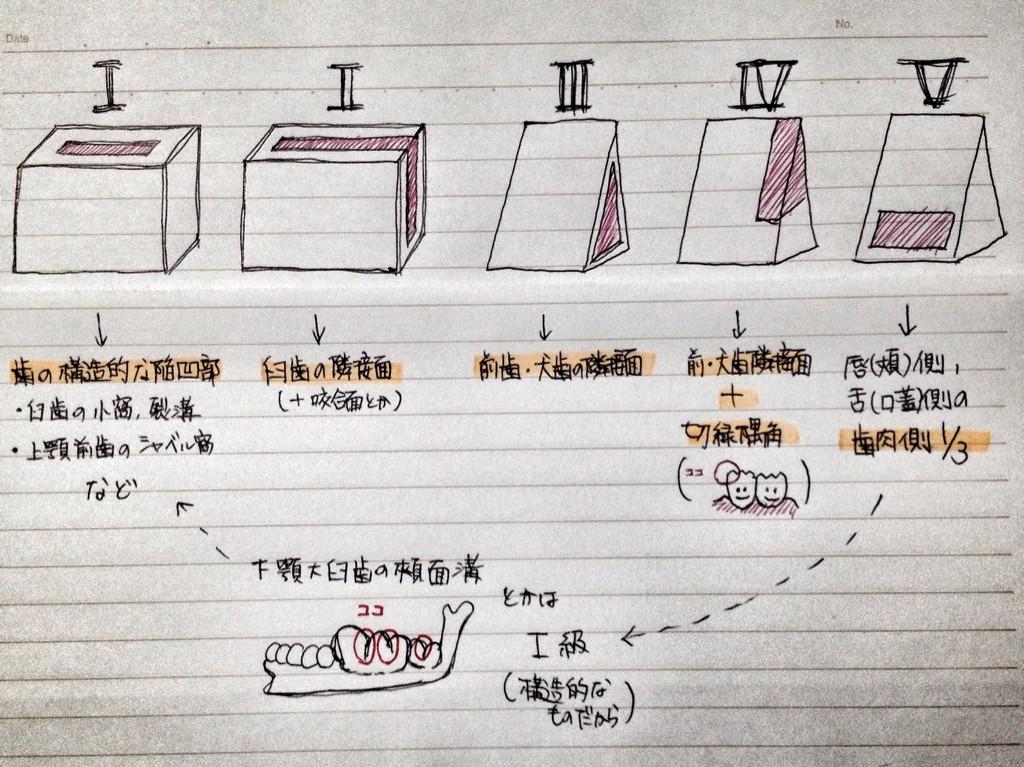 Date
No.
I
II
III
IV
V
歯の構造的な陥凹部
・臼歯の小窩,裂溝
・上顎前歯のシャベル窩
など
臼歯の隣接面
(+咬合面とか)
前歯・犬歯の隣接面
前・犬歯隣接面
+
切縁隅角
(ココ )
唇(頬)側,
舌(口蓋)側の
歯肉側1/3
下顎大臼歯の頬面溝
ココ
とかは
I級
(構造的な
ものだから)